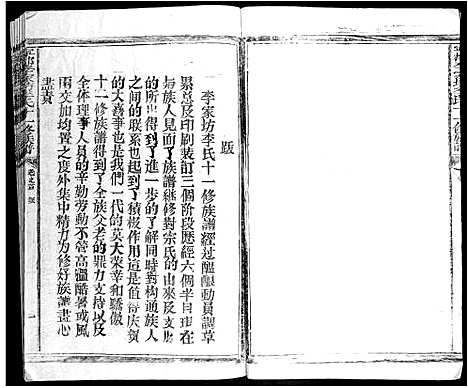 跋
李家坊李氏十一修族譜經过醖釀動員調草
累总及印刷装訂三个阶段歷經六個半月現在
与族人見面了族譜继修对宗氏的山來及支助
的所出得到了進一步的了解同時对构通族人
之间的联系也起到了積极作用這是值得庆贺
的大喜事也是我們一代的莫大荣幸和驕傲
十二修族譜得到了全族父老的鼎力支持以及
全体理事人員的辛勤劳動不管高溫酷暑或風
雨交加均置之度外集中精力为修好族譜盡心
盡責